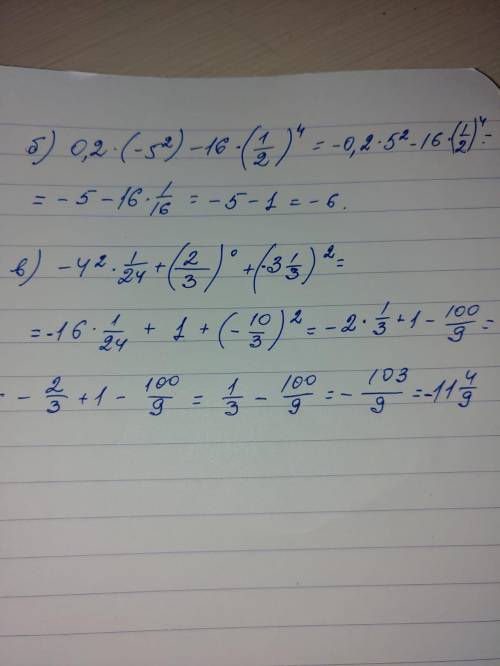 б) 0,2·(-5²)-16·(1/2)⁴ = -0,2·5²-16·(1/2)⁴=
= -5-16·1/16 = -5-1 = -6.
в) -4²·1/24+(2/3)⁰+(-3 1/3)²=
= -16·1/24 + 1 + (-10/3)² = -2·1/3+1-100/9=
- -2/3+1-100/9 = 1/3-100/9=-103/9=-11 4/9